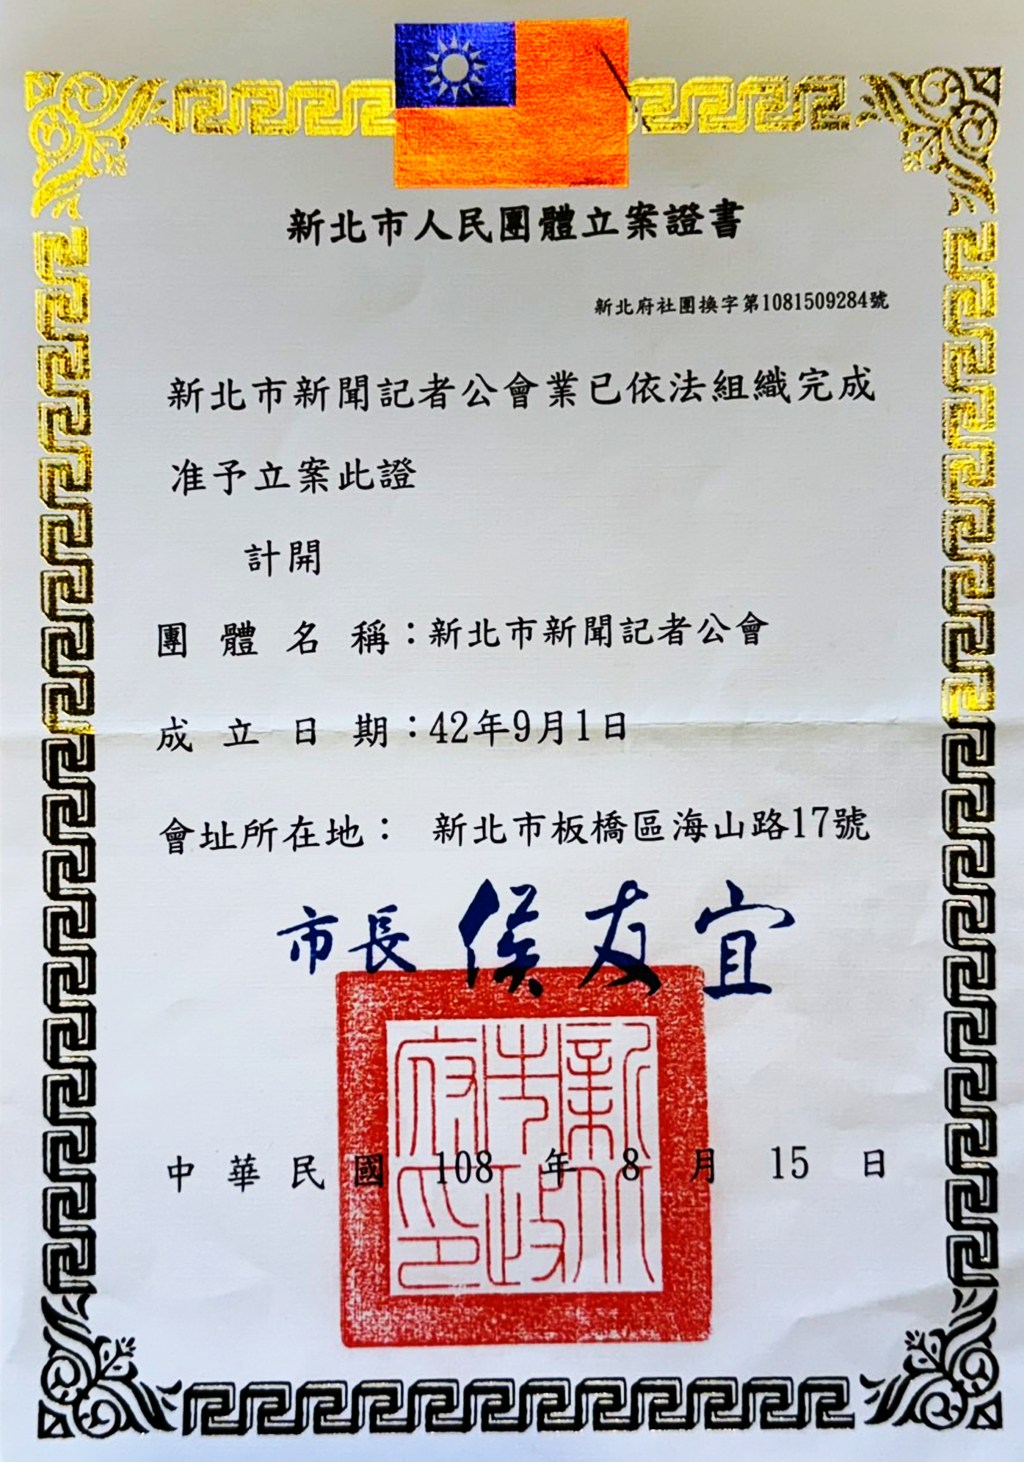 新北市人民團體立案證書
新北府社團換字第1081509284號
新北市新聞記者公會業已依法組織完成
准予立案此證
計開
團體名稱：新北市新聞記者公會
成立日期：42年9月1日
會址所在地： 新北市板橋區海山路17號
市長 侯友宜
中華民國 108 年 8 月 15 日
新北市政府印